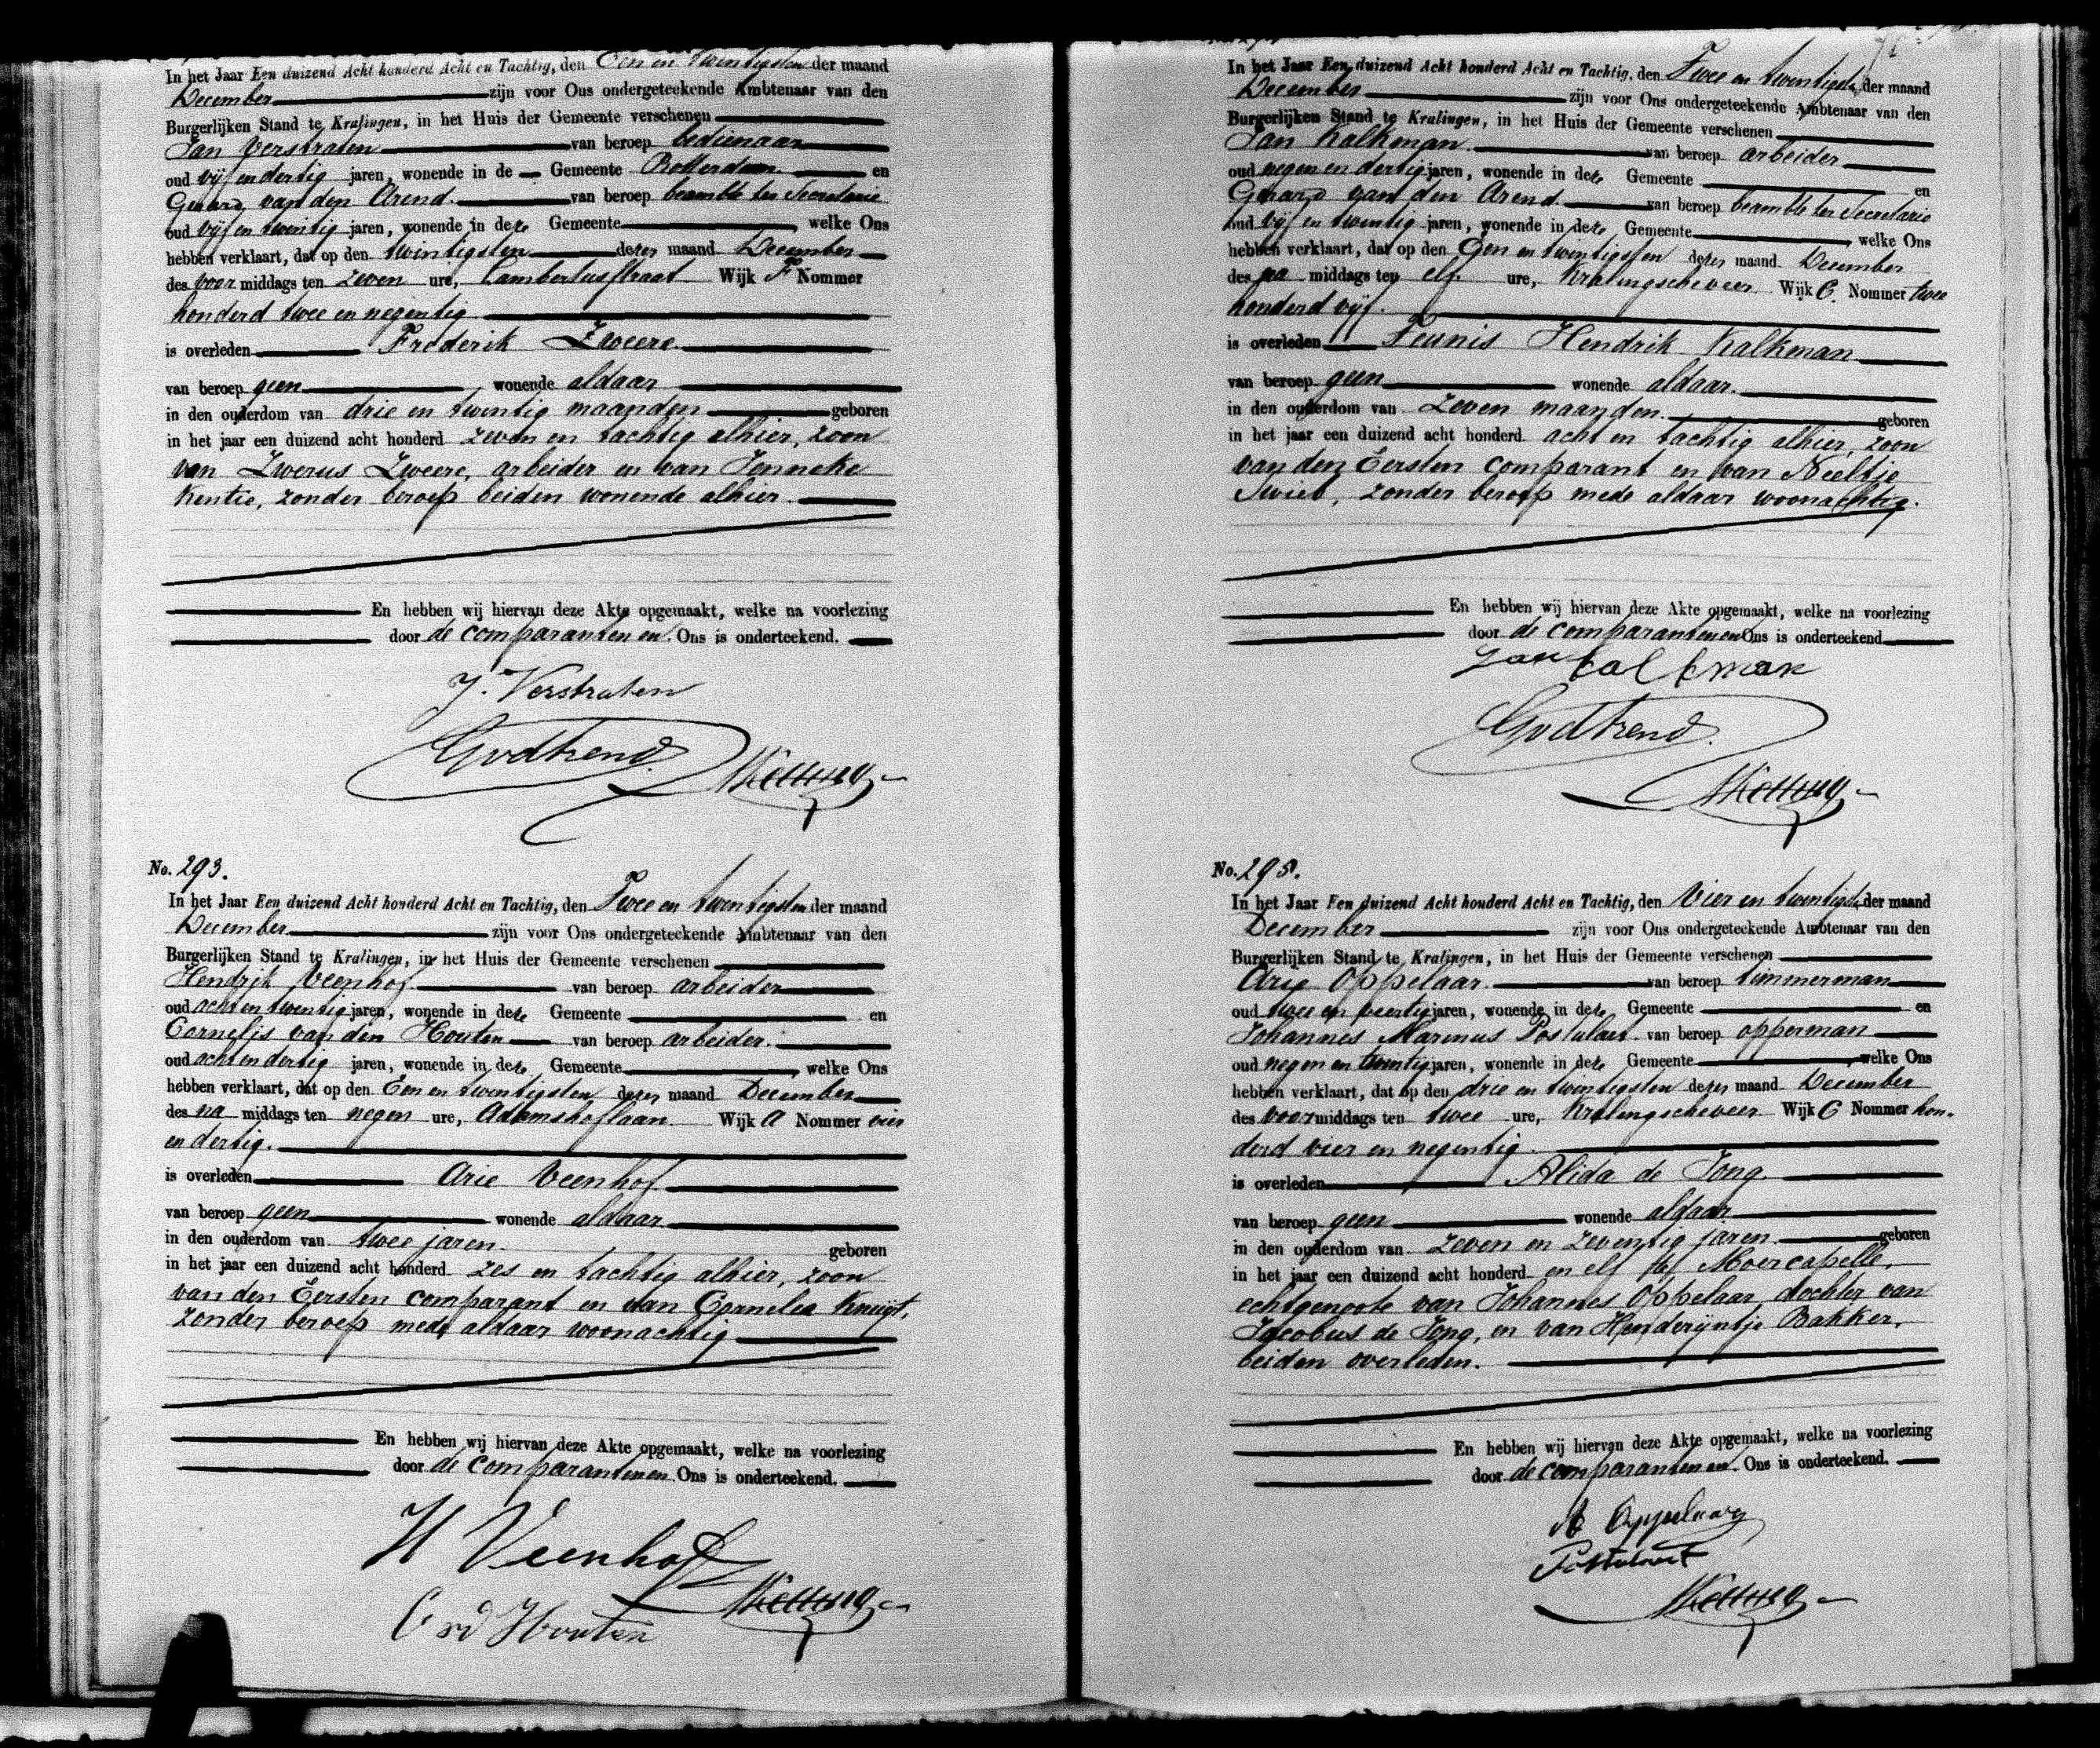 In het Jaar Een duizend Acht honderd Acht en Tachtig, den Een en twintigsten der maand
December zijn voor Ons ondergeteekende Ambtenaar van den
Burgerlijken Stand te Kralingen, in het Huis der Gemeente verschenen
Jan Verstraten van beroep bedienaar
oud vijf en dertig jaren, wonende in de Gemeente Rotterdam en
Gerard van den Arend. van beroep beambte ter Secretarie
oud vijf en twintig jaren, wonende in deze Gemeente welke Ons
hebben verklaart, dat op den twintigsten dezer maand December
des voor middags ten zeven ure, Lambertusstraat Wijk F Nommer
honderd twee en negentig
is overleden Frederik Zweere.
van beroep geen wonende aldaar
in den ouderdom van drie en twintig maanden geboren
in het jaar een duizend acht honderd zeven en tachtig alhier, zoon
van Zwerus Zweere, arbeider en van Jenneke
Kentie, zonder beroep beiden wonende alhier.
En hebben wij hiervan deze Akte opgemaakt, welke na voorlezing
door de comparanten en Ons is onderteekend.
J. Verstraten
GvdArend.
No. 293.
In het Jaar Een duizend Acht honderd Acht en Tachtig, den Twee en twintigsten der maand
December zijn voor Ons ondergeteekende Ambtenaar van den
Burgerlijken Stand te Kralingen, in het Huis der Gemeente verschenen
Hendrik Veenhof. van beroep arbeider
oud acht en twintig jaren, wonende in deze Gemeente en
Cornelis van den Houten van beroep arbeider.
oud acht en dertig jaren, wonende in deze Gemeente welke Ons
hebben verklaart, dat op den Een en twintigsten dezer maand December
des na middags ten negen ure, Adamshoflaan Wijk A Nommer vier
en dertig.
is overleden Arie Veenhof
van beroep geen wonende aldaar
in den ouderdom van twee jaren. geboren
in het jaar een duizend acht honderd zes en tachtig alhier, zoon
van den Eersten comparant en van Cornelia Kruijt,
zonder beroep mede aldaar woonachtig
En hebben wij hiervan deze Akte opgemaakt, welke na voorlezing
door de comparanten en Ons is onderteekend.
H Veenhof
C vd Houten
In het Jaar Een duizend Acht honderd Acht en Tachtig, den Twee en twintigste der maand
December zijn voor Ons ondergeteekende Ambtenaar van den
Burgerlijken Stand te Kralingen, in het Huis der Gemeente verschenen
Jan Kalkman. van beroep arbeider
oud negen en dertig jaren, wonende in deze Gemeente en
Gerard van den Arend. van beroep beambte ter Secretarie
oud vijf en twintig jaren, wonende in deze Gemeente welke Ons
hebben verklaart, dat op den Een en twintigsten dezer maand December
des na middags ten elf ure, Kralingscheveer Wijk C. Nommer twee
honderd vijf.
is overleden Teunis Hendrik Kalkman
van beroep geen wonende aldaar.
in den ouderdom van zeven maanden. geboren
in het jaar een duizend acht honderd acht en tachtig alhier, zoon
van den Eersten comparant en van Neeltje
Swiet, zonder beroep mede aldaar woonachtig.
En hebben wij hiervan deze Akte opgemaakt, welke na voorlezing
door de comparanten en Ons is onderteekend
Jan Kalkman
GvdArend.
No. 295.
In het Jaar Een duizend Acht honderd Acht en Tachtig, den Vier en twintigste der maand
December zijn voor Ons ondergeteekende Ambtenaar van den
Burgerlijken Stand te Kralingen, in het Huis der Gemeente verschenen
Arie Oppelaar. van beroep timmerman
oud twee en veertig jaren, wonende in deze Gemeente en
Johannes Marinus Postulart van beroep opperman
oud negen en twintig jaren, wonende in deze Gemeente welke Ons
hebben verklaart, dat op den drie en twintigsten dezer maand December
des voor middags ten twee ure, Kralingscheveer Wijk C Nommer hon-
derd vier en negentig
is overleden Alida de Jong
van beroep geen wonende aldaar
in den ouderdom van zeven en zeventig jaren geboren
in het jaar een duizend acht honderd en elf te Moercapelle,
echtgenoote van Johannes Oppelaar, dochter van
Jacobus de Jong, en van Henderijntje Bakker,
beiden overleden.
En hebben wij hiervan deze Akte opgemaakt, welke na voorlezing
door de comparanten en Ons is onderteekend.
A Oppelaar
Postulart